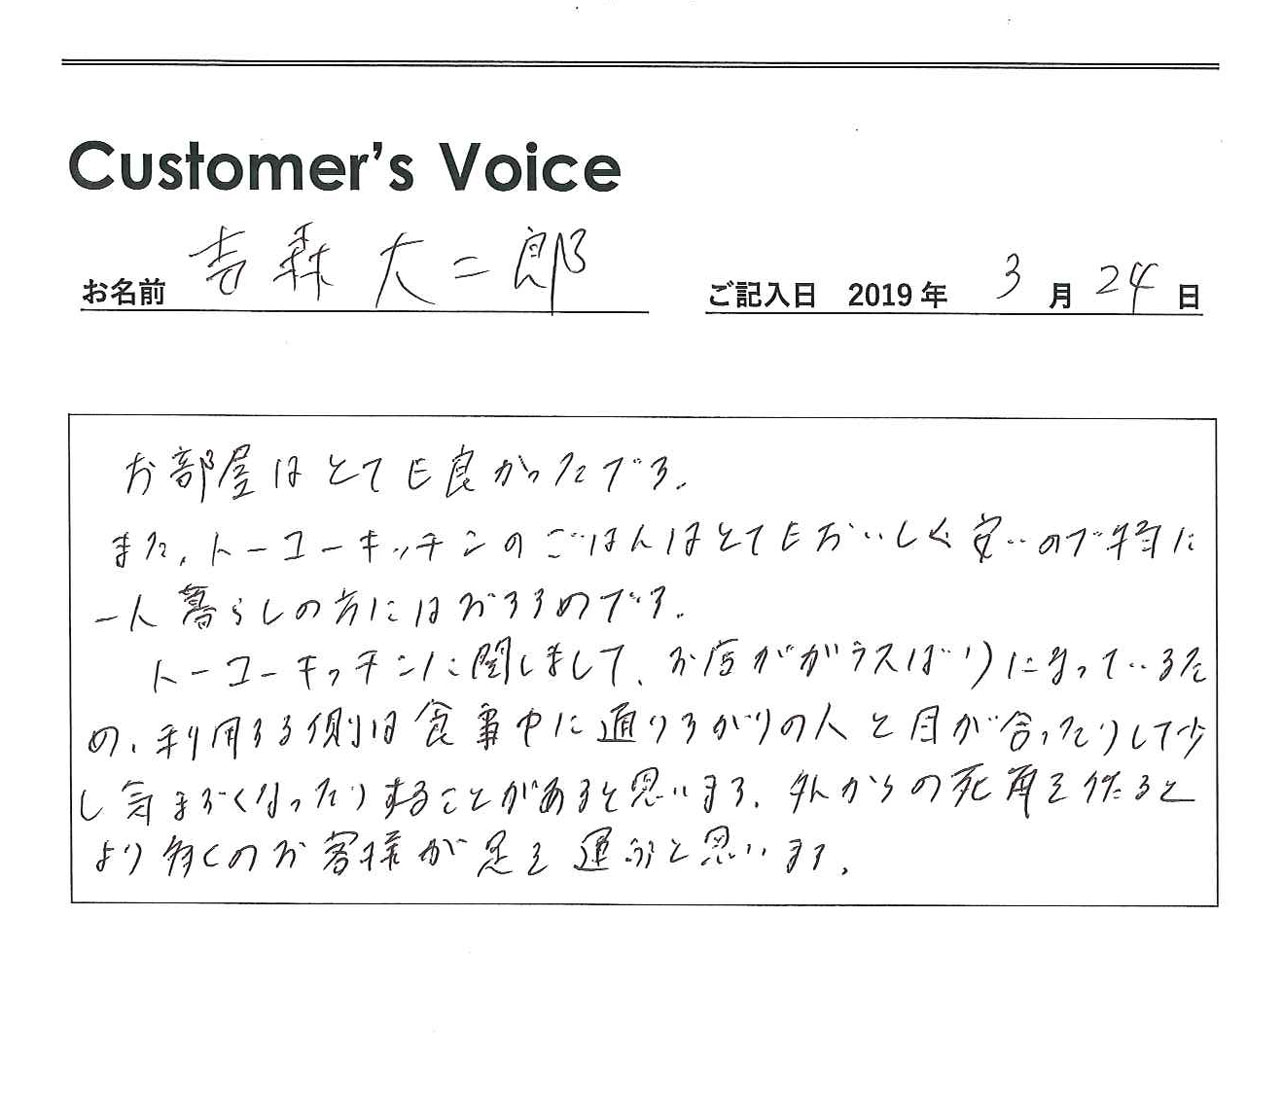 Customer's Voice
お名前 吉森 大二郎
ご記入日 2019年 3月24日
お部屋はとても良かったです。
また、トーコーキッチンのごはんはとてもおいしく安いので特に
一人暮らしの方にはおすすめです。
トーコーキッチンに関しまして、お店がガラスばりになっているた
め、利用する側は食事中に通りすがりの人と目が合ったりして少
し気まずくなったりすることがあると思います。外からの死角を作ると
より多くのお客様が足を運ぶと思います。